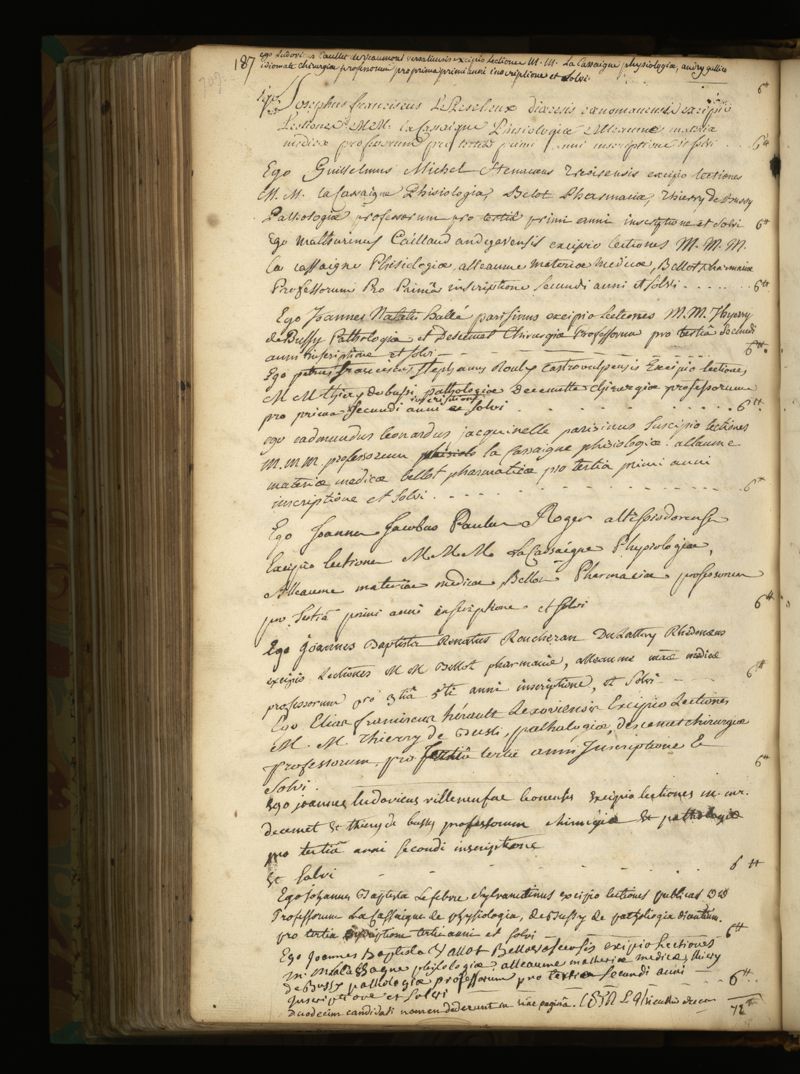 187
ego Ludovi de Beaumont versaliensis excipio lectiones M. M. La Cassaigne physiologiæ, audry gallico
idiomate chirurgiæ professorum pro prima primi anni inscriptione et solvi. 6tt
Josephus franciscus diœcesis cenomanensis excipio
Lectiones M.M. la Cassaigne Phisiologiæ Alleaume materiæ
medicæ professorum pro tertia primi anni inscriptione et solvi . . . 6tt
Ego Guillelmus Michel excipio lectiones
M. M. la Cassaigne Phisiologiæ, Belot Pharmaciæ, Thierry de Bussy
Pathologiæ professorum pro tertiâ primi anni inscriptione et solvi 6tt
Ego Mathurinus Caillaud andegavensis excipio lectiones M. M. M.
la cassaigne Phisiologiæ, alleaume Materiæ Medicæ, Bellot pharmaciæ
Professorum Pro Primâ inscriptione Secundi anni et Solvi . . . . . . 6tt
Ego Joannes Natalis Ballé parisinus excipio Lectiones M.M. Thyery
de Bussy Pathologiæ et Descemet Chirurgiæ Professorum pro tertiâ Secundi
anni inscriptione et solvi 6tt
Ego petrus franciscus Stephanus Rouly castrovulpensis Excipio lectiones
M M thiery de bussi pathologiæ Decemette chirurgiæ professorum
pro prima Secundi anni inscriptione et Solvi . . . . . . 6tt
ego eadmundus leonardus jacquinelle parisinus suscipio lectiones
M. M. M. professorum la Cassaigne phisiologiæ. alleaume
materiæ medicæ bellot pharmaticæ pro tertia primi anni
inscriptione et Solvi . . . 6tt
Ego Joannes Jacobus Paulus Roger altissiodorensis
Excipio lectiones M M M La Cassaigne Physiologiæ,
Alleaume materiæ medicæ Bellot Pharmaciæ professorum
pro tertiâ primi anni inscriptione et solvi 6tt
Ego Joannes Baptista Renatus Roucheran Dulattay Rhedonæus
excipio Lectiones M M Bellot pharmaciæ, alleaume mæ medicæ
professorum pro 3tiâ 1ti anni inscriptione, et Solvi 6tt
Ego Elias franciscus hérault Lexoviensis Excipio Lectiones
M. M. Thierry de Bussi, pathologiæ, descemet chirurgiæ
professorum pro tertiæ anni Inscriptione &
Solvi. 6tt
Ego joannes ludovicus villeneufve leonensis excipio lectiones m. m.
decemet & thiery de bussy professorum chirurgiæ & pathologiæ
pro tertiâ anni secundi inscriptione
& Solvi 6tt
Ego Johannes Baptista Lefebvre Sylvanectinus excipio lectiones publicas DD
Professorum La Cassaigne de physiologia, de Bussy de pathologia
pro tertia inscriptione tertii anni et solvi 6tt
Ego Joannes Baptista Vallot Bellovacensis excipio Lectiones
m. m. la Cassagne phisiologiæ, alleaume matheriæ medicæ, thiery
de Bussy pathologiæ professorum pro tertia secundi anni
Inscriptione et Solvi 6tt
duodecim candidati nomen dederunt in hac pagina. 72tt